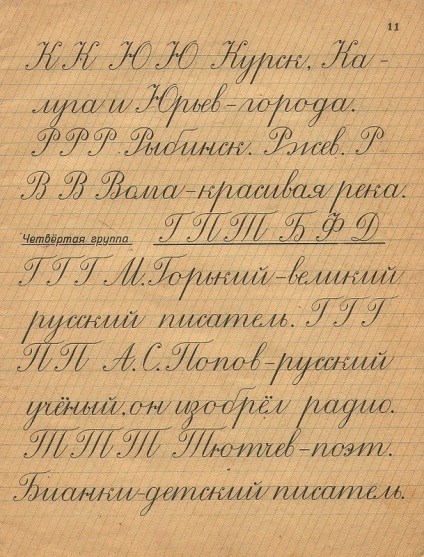 11
К К Ю Ю Курск, Ка-
луга и Юрьев-города.
Р Р Р Рыбинск. Ржев. Р
В В Волга-красивая река.
Четвёртая группа Г П Т Б Ф Д
Г Г Г М. Горький-великий
русский писатель. Г Г Г
П П А. С. Попов-русский
учёный, он изобрёл радио.
Т Т Т Тютчев-поэт.
Бианки-детский писатель.